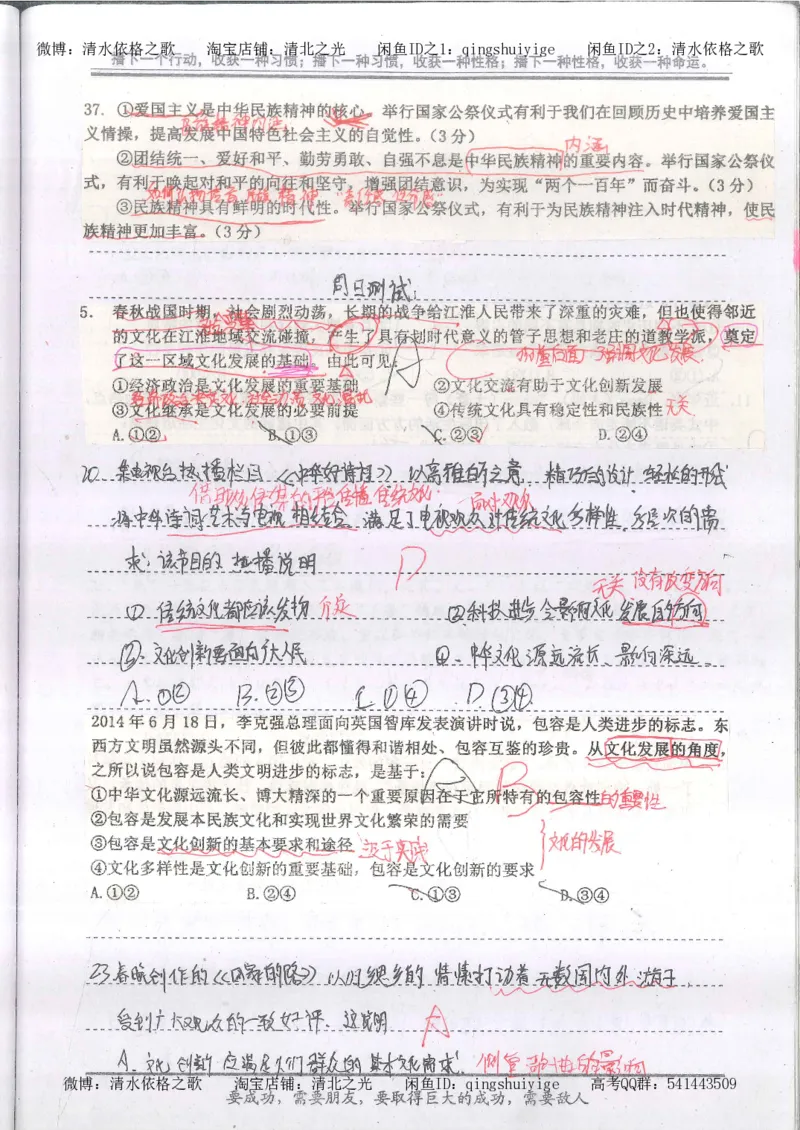 微博：清水依格之歌 淘宝店铺：清北之光 闲鱼ID之1：qingshuiyige 闲鱼ID之2：清水依格之歌
播下一个行动，收获一种习惯；播下一种习惯，收获一种性格；播下一种性格，收获一种命运。
37. ①爱国主义是中华民族精神的核心。举行国家公祭仪式有利于我们在回顾历史中培养爱国主
义情操，提高发展中国特色社会主义的自觉性。（3分）
内涵
②团结统一、爱好和平、勤劳勇敢、自强不息是中华民族精神的重要内容。举行国家公祭仪
式，有利于唤起对和平的向往和坚守，增强团结意识，为实现“两个一百年”而奋斗。（3分）
③民族精神具有鲜明的时代性。举行国家公祭仪式，有利于为民族精神注入时代精神，使民
族精神更加丰富。（3分）
周日测试：
5. 春秋战国时期，社会剧烈动荡，长期的战争给江淮人民带来了深重的灾难，但也使得邻近
的文化在江淮地域交流碰撞，产生了具有划时代意义的管子思想和老庄的道教学派，奠定
了这一区域文化发展的基础。由此可见 A
①经济政治是文化发展的重要基础 ②文化交流有助于文化创新发展
③文化继承是文化发展的必要前提 ④传统文化具有稳定性和民族性 无关
A.①② B.①③ C.②③ D.②④
20. 某电视台热播栏目《中华好诗词》，以高雅的文意、精巧的设计、轻松的形式
将中华诗词艺术与电视相结合，满足了电视观众对传统文化多样性、多层次的需
求；该节目的热播说明 D
无关 没有改变方向
①传统文化都应该发扬 ②科技进步会影响文化发展的方向
③文化创新要面向广大人民 ④中华文化源远流长、影响深远
A.①② B.②③ C.①④ D.③④
2014年6月18日，李克强总理面向英国智库发表演讲时说，包容是人类进步的标志。东
西方文明虽然源头不同，但彼此都懂得和谐相处、包容互鉴的珍贵。从文化发展的角度，
之所以说包容是人类文明进步的标志，是基于： B
①中华文化源远流长、博大精深的一个重要原因在于它所特有的包容性的重要性
②包容是发展本民族文化和实现世界文化繁荣的需要
③包容是文化创新的基本要求和途径 立于实践 文化的发展
④文化多样性是文化创新的重要基础，包容是文化创新的要求
A.①② B.②④ C.①③ D.③④
23.春晚创作的《回家的路》以归绕乡的情愫打动着无数国内外游子，
受到广大观众的一致好评。这说明 A
A.文化创新应满足人们群众的基本文化需求
微博：清水依格之歌 淘宝店铺：清北之光 闲鱼ID：qingshuiyige 高考QQ群：541443509
要成功，需要朋友，要取得巨大的成功，需要敌人